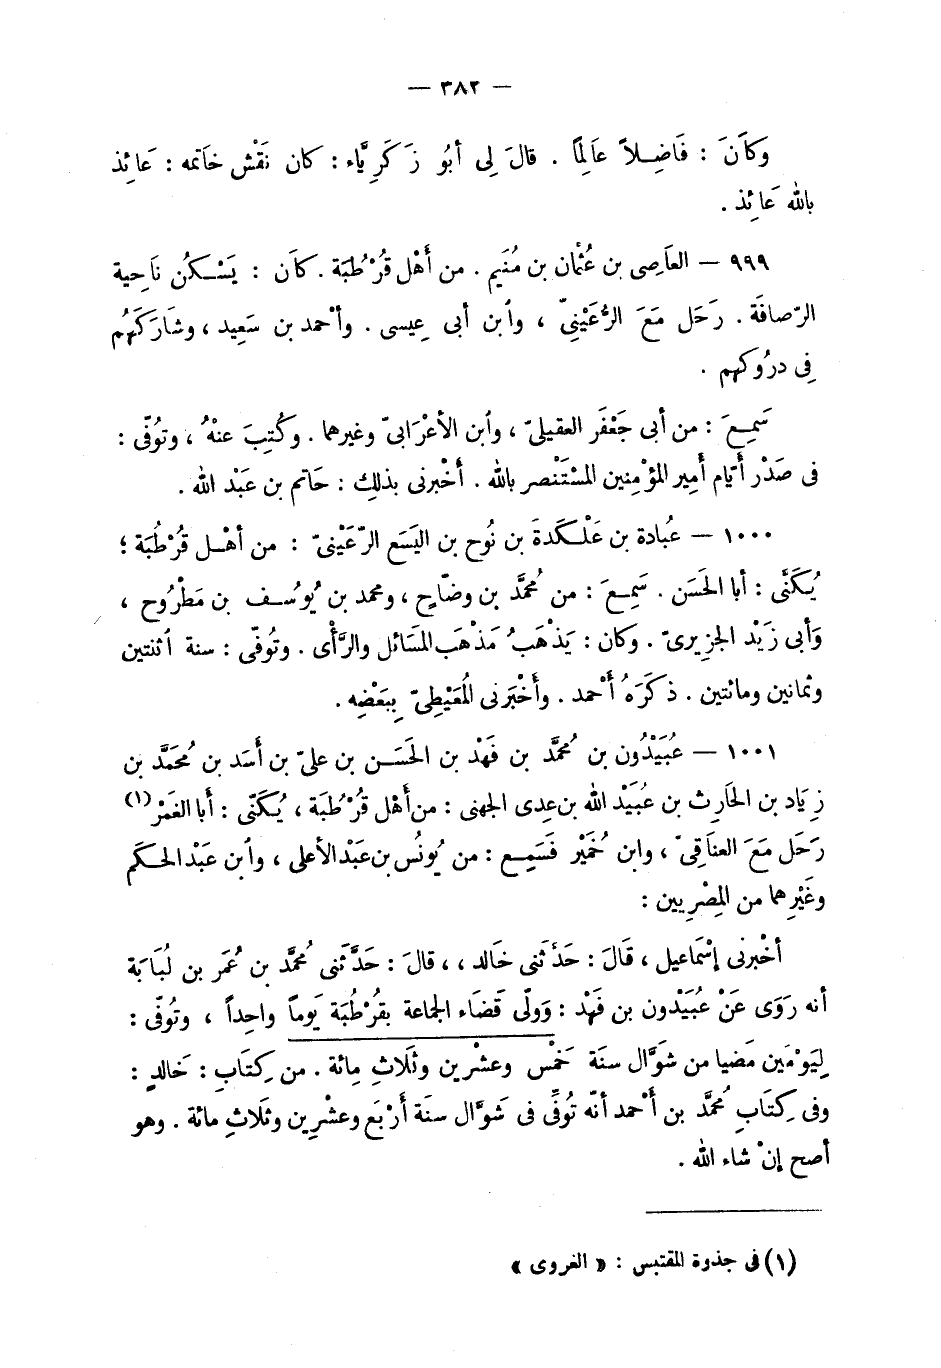 — ٣٨٢ —
وَكَانَ : فَاضِلاً عَالِمًا . قالَ لِى أبُو زَكَرِيَّاء : كان نَقْش خاتمه : عَائِذ
بالله عَائِذ .
٩٩٩ — العَاصِى بن عُثمَان بن مُنَيم . من أَهْل قُرْطُبَة . كَان : يَسْكُن نَاحِية
الرّصافَة . رَحَل مَعَ الرُّعَيْنِىّ ، وٱبن أبى عِيسى . وأحْمد بن سَعِيد ، وشَارَكَهُم
فِى درُوكهم .
سَمِعَ : من أبى جَعْفَر العقيلىّ ، وٱبن الأعْرَابىّ وغيرهما . وكُتِبَ عنْهُ ، وتوُفّى :
فى صَدْر أيّام أَمِير المؤمِنين المسْتَنْصر بالله . أخْبرنى بذلِك : حَاتم بن عَبْد الله .
١٠٠٠ — عُبادة بن عَلْكَدةَ بن نُوح بن اليَسَع الرّعَيْنىّ : من أهْل قُرْطُبَة ؛
يُكَنَّى : أبا الحَسَن . سَمِعَ : من مُحمَّد بن وضّاح ، ومحمد بن يُوسُف بن مَطْرُوح ،
وَأبى زَيْد الجزِيرىّ . وكان : يَذْهَبُ مَذْهَب المَسَائل والرَّأْى . وتُوفّى : سنة ٱثنتين
وثمانين ومائتين . ذكَرَهُ أحْمد . وأَخْبَرَنى المُعَيْطِىّ بِبَعْضِه .
١٠٠١ — عُبَيْدُون بن مُحمَّد بن فَهْد بن الحَسَن بن علىّ بن أَسَد بن مُحَمَّد بن
زِيَاد بن الحَارِث بن عُبَيْد الله بن عدِى الجهنى : من أَهْل قُرْطُبَة ، يُكَنّى : أَبا الغَمْر (١)
رَحَل مَعَ العنَاقِىّ ، وابن خُمَيْر فَسَمِع : من يُونُس بن عَبْد الأعلى ، وٱبن عَبْد الحكَم
وغَيْرهما من المِصْرِيين :
أخْبرنى إسْمَاعيل ، قَالَ : حَدَّثَنى خَالد ، ، قالَ : حَدَّثَنى مُحمَّد بن عُمَر بن لُبَابَة
أنه رَوَى عَنْ عُبَيْدون بن فَهْد : وَوَلّى قَضَاء الجماعة بقُرْطُبَة يَوماً واحِداً ، وتوُفّى :
لِيَوْمَين مَضيا من شوّال سنَة خَمْس وعشْرين وثَلَاثِ مائة . من كِتَابِ : خَالدٍ :
وفى كِتَابِ مُحمَّد بن أحْمد أنّه تُوُفّى فى شوّال سنَة أرْبَع وعشْرِين وثلَاثِ مائة . وهو
أصح إنْ شاء الله .
(١) فى جذوة المقتبس : « الغروى »